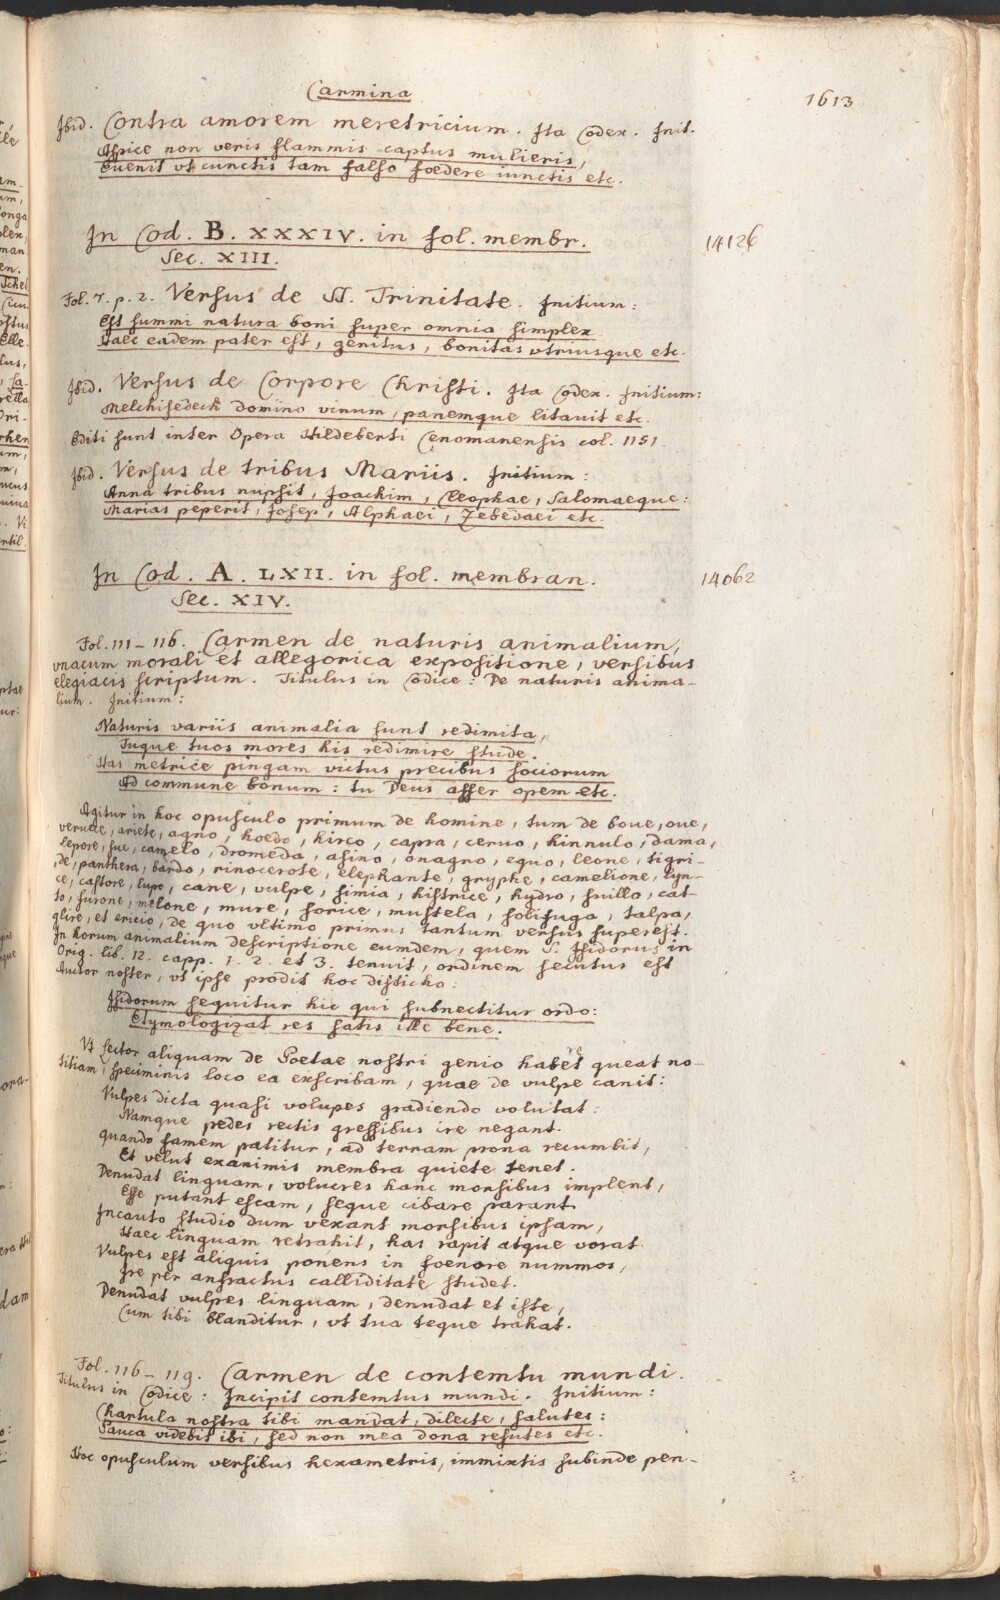 Carmina
1613
Ibid. Contra amorem meretricium. Ita Codex. Init.
Aspice non veris flammis captus mulieris,
Euenit vt cunctis tam falso foedere iunctis etc.
In Cod. B. XXXIV. in fol. membr.
14126
Sec. XIII.
Fol. 7. p. 2. Versus de SS. Trinitate. Initium:
Est summi natura boni super omnia simplex
Haec eadem pater est, genitus, bonitas vtriusque etc.
Ibid. Versus de Corpore Christi. Ita Codex. Initium:
Melchisedech domino vinum, panemque litauit etc.
Editi sunt inter Opera Hildeberti Cenomanensis col. 1151
Ibid. Versus de tribus Mariis. Initium:
Anna tribus nupsit, Joachim, Cleophae, Salomaeque:
Marias peperit, Josep, Alphaei, Zebedaei etc.
In Cod. A. LXII. in fol. membran.
14062
Sec. XIV.
Fol. 111-116. Carmen de naturis animalium,
vnacum morali et allegorica expositione, versibus
elegiacis scriptum. Titulus in Codice: De naturis anima-
lium. Initium:
Naturis variis animalia sunt redimita,
Tuque tuos mores his redimire stude.
Has metrice pingam victus precibus sociorum
Ad commune bonum: tu Deus affer opem etc.
Agitur in hoc opusculo primum de homine, tum de boue, oue,
veruece, ariete, agno, hoedo, hirco, capra, ceruo, hinnulo, dama,
lepore, sue, camelo, dromeda, asino, onagro, equo, leone, tigri-
de, panthera, bardo, rinocerote, elephante, gryphe, camelione, lyn-
ce, castore, lupo, cane, vulpe, simia, histrice, hydro, suillo, cat-
to, furone, melone, mure, sorice, mustela, solifuga, talpa,
glire, et ericio, de quo vltimo primus tantum versus superest.
In horum animalium descriptione eumdem, quem S. Isidorus in
Orig. lib. 12. capp. 1. 2. et 3. tenuit, ordinem secutus est
Auctor noster, vt ipse prodit hoc disticho:
Isidorum sequitur hic qui subnectitur ordo:
Etymologizat res satis ille bene.
Vt Lector aliquam de Poetae nostri genio habere queat no-
titiam, speciminis loco ea exscribam, quae de vulpe canit:
Vulpes dicta quasi volupes gradiendo volutat:
Namque pedes rectis gressibus ire negant.
quando famem patitur, ad terram prona recumbit,
Et velut exanimis membra quiete tenet.
Denudat linguam, volucres hanc morsibus implent,
Esse putant escam, seque cibare parant
Incauto studio dum vexant morsibus ipsam,
Haec linguam retrahit, has rapit atque vorat.
Vulpes est aliquis ponens in foenore nummos,
Ire per anfractus calliditate studet.
Denudat vulpes linguam, denudat et iste,
Cum tibi blanditur, vt tua teque trahat.
Fol. 116-119. Carmen de contemtu mundi.
Titulus in Codice: Incipit contemtus mundi. Initium:
Chartula nostra tibi mandat, dilecte, salutes:
Pauca videbit ibi, sed non mea dona refutes etc.
Hoc opusculum versibus hexametris, immixtis subinde pen-